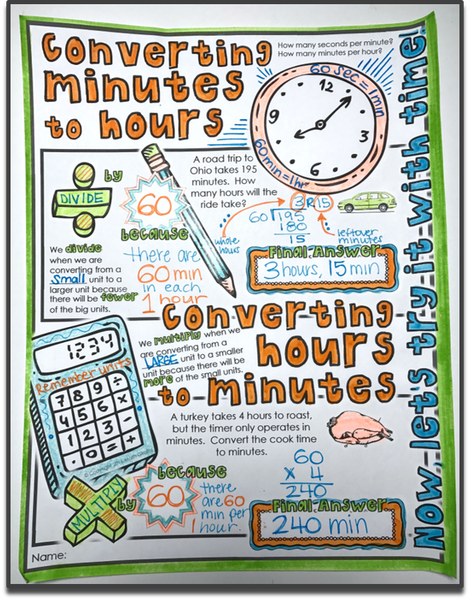 Converting
minutes
to hours
How many seconds per minute?
How many minutes per hour?
60 sec = 1 min
12
3
6
9
60 min = 1 hr
Now, let's try it with time!
DIVIDE
by
60
because
there are
60 min
in each
1 hour
A road trip to
Ohio takes 195
minutes. How
many hours will the
ride take?
3 R 15
60 195
180
15
whole
hours
leftover
minutes
Final Answer
3 hours, 15 min
We divide
when we are
converting from a
Small unit to a
larger unit because
there will be fewer
of the big units.
Converting
hours
to minutes
We multiply when we
are converting from a
LARGE unit to a smaller
unit because there will be
more of the small units.
1234
Remember units
7 8 9 ÷
4 5 6 ×
1 2 3 -
0 . = +
A turkey takes 4 hours to roast,
but the timer only operates in
minutes. Convert the cook time
to minutes.
60
x 4
240
Final Answer
240 min
MULTIPLY
by
60
because
there
are 60
min per
1 hour.
Name: